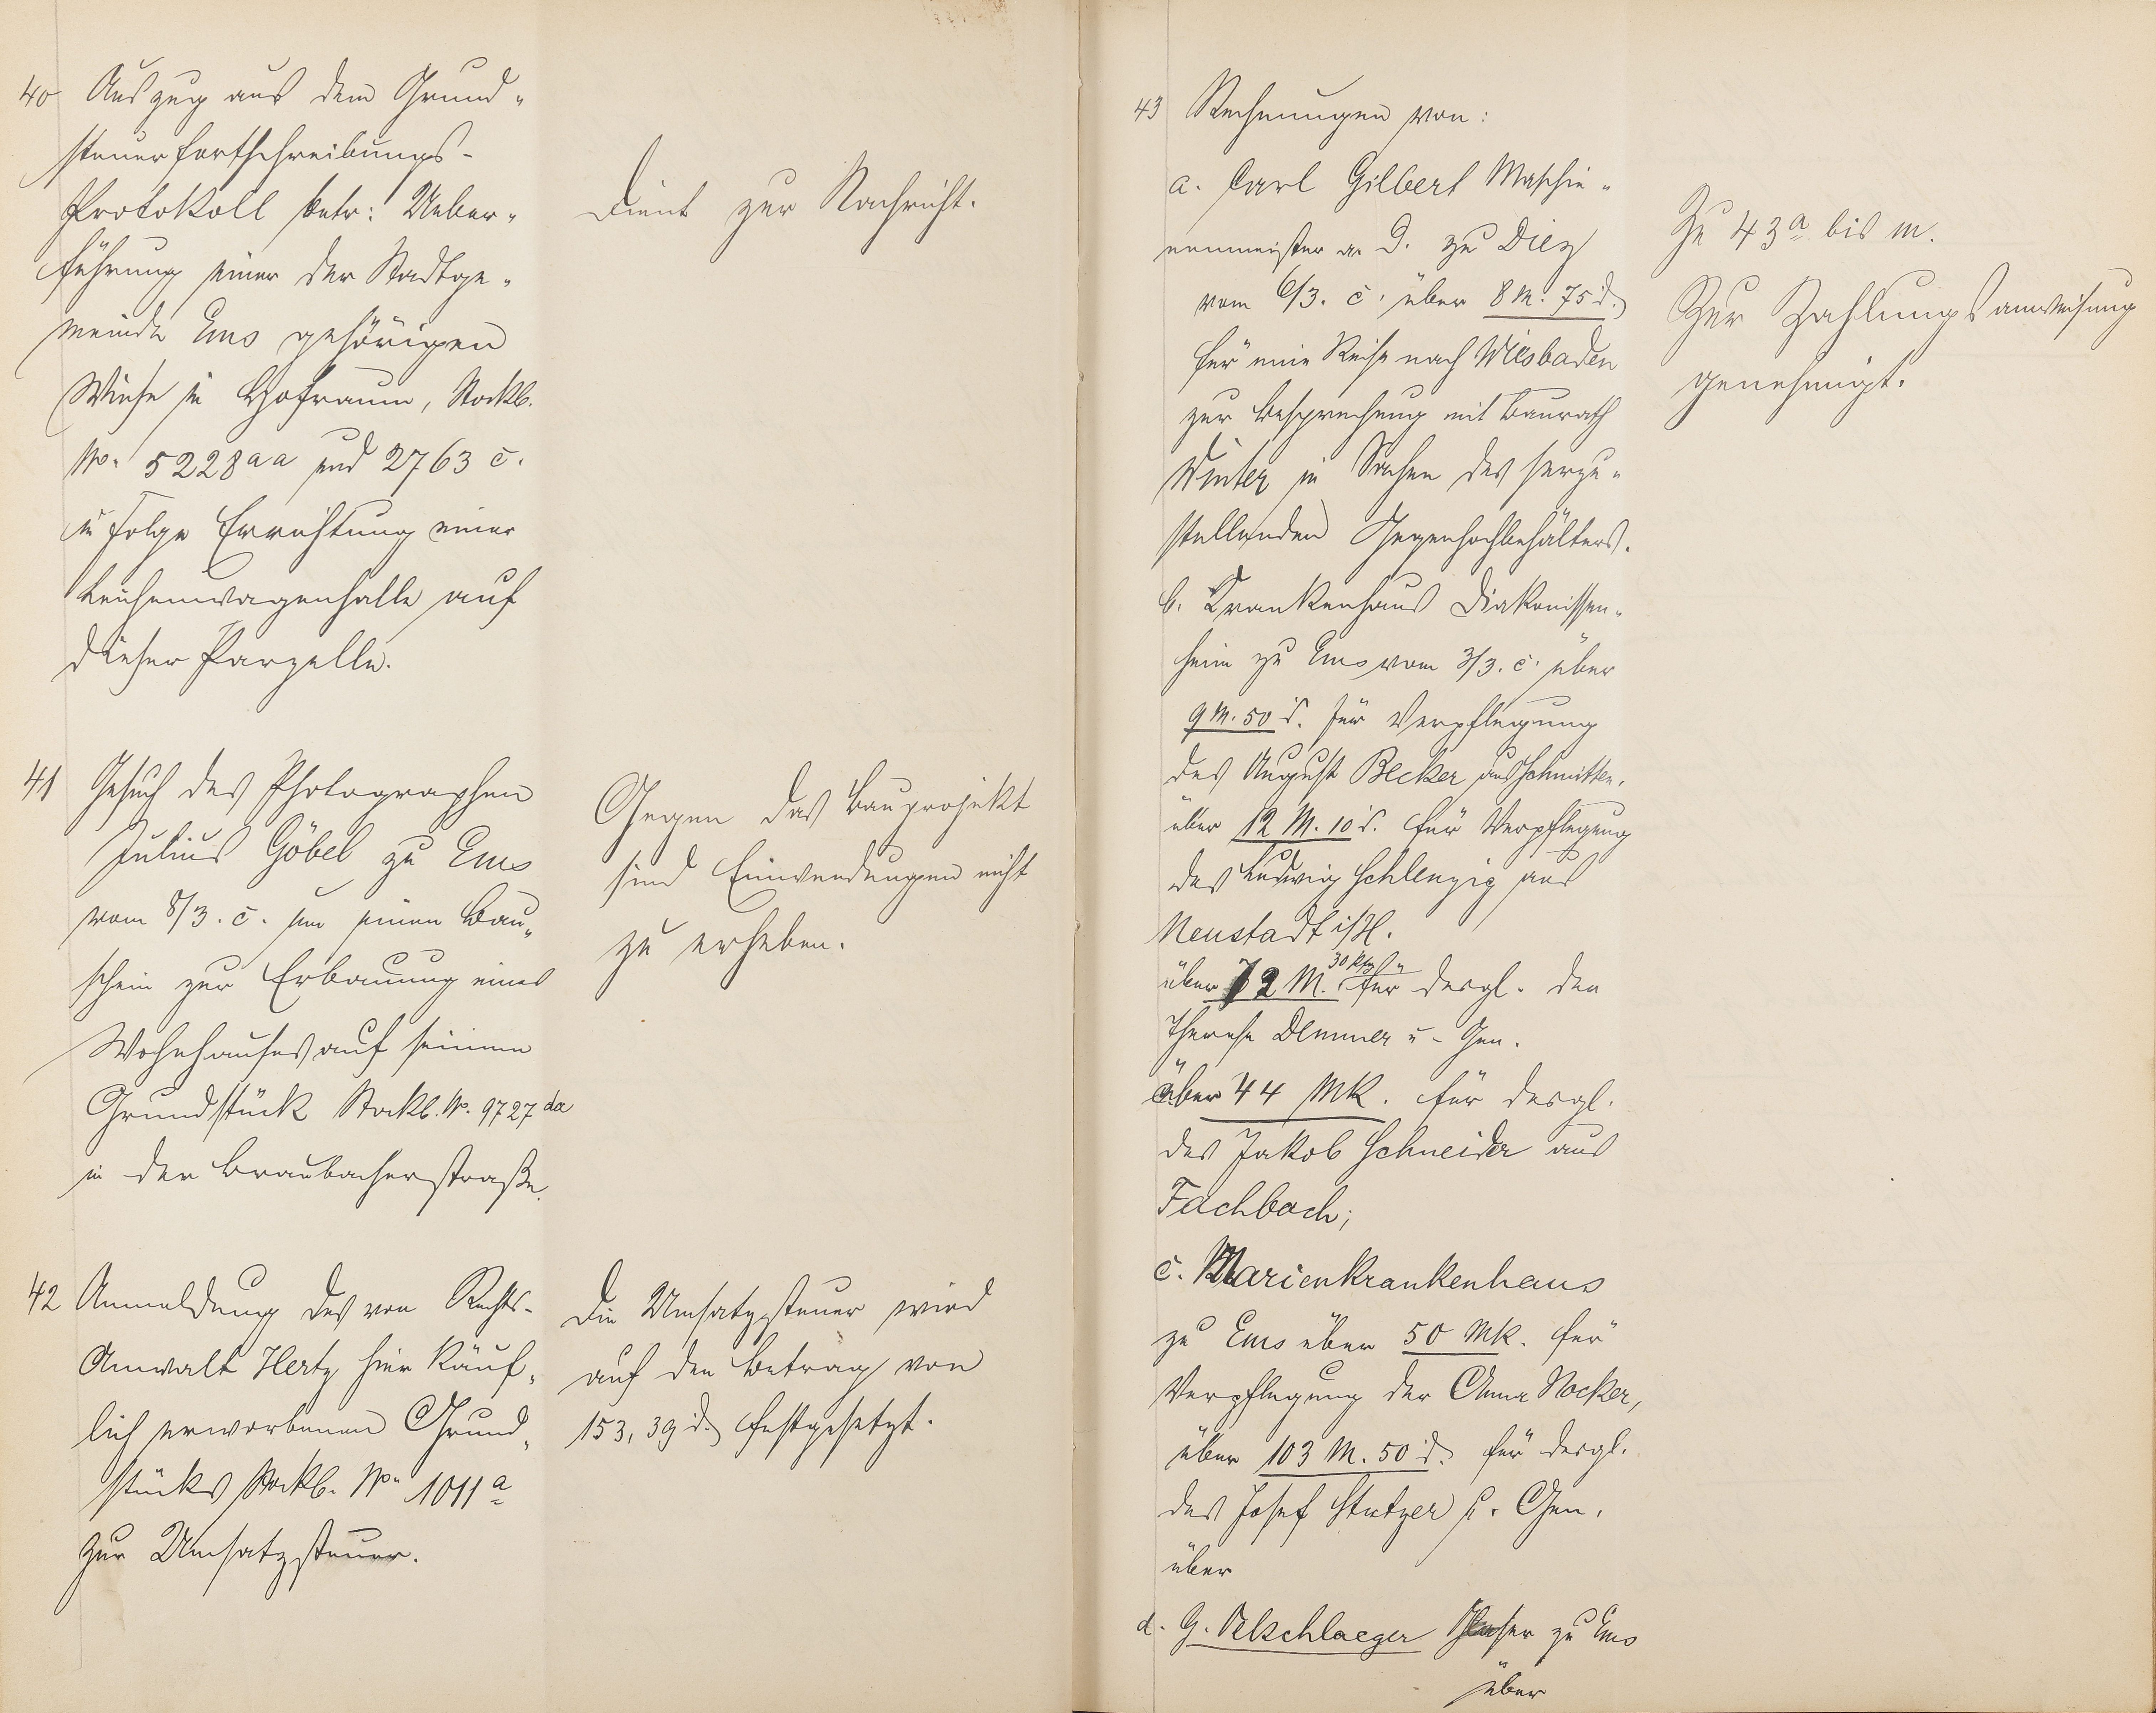 40 Auszug aus dem Grund-
steuerfortschreibungs-
Protokoll betr: Ueber-
führung einer der Stadtge-
meinde Ems gehörigen
Wiese in Hofraum, Stockb.
No. 5228aa und 2763 c.
in Folge Errichtung einer
Leichenwagenhalle auf
dieser Parzelle.
Dient zur Nachricht.
41 Gesuch des Photographen
Julius Göbel zu Ems
vom 8/3. c. um einen Bau-
schein zur Erbauung eines
Wohnhauses auf seinem
Grundstück Stockb. No. 9727 da
in der Braubacherstraße.
Gegen das Bauprojekt
sind Einwendungen nicht
zu erheben.
42 Anmeldung des von Rechts-
Anwalt Hertz hier käuf-
lich erworbenen Grund-
stücks Stockb. No. 1011 a
zur Umsatzsteuer.
Die Umsatzsteuer wird
auf den Betrag von
153,39 d. festgesetzt.
43 Rechnungen von:
a. Carl Gilbert Maschi-
nenmeister a. D. zu Diez
vom 6/3. c. über 8 M. 75 d.
für eine Reise nach Wiesbaden
zur Besprechung mit Baurath
Winter in Sachen des herzu-
stellenden Gegenhochbehälters.
b. Krankenhaus Diakonissen-
heim zu Ems vom 3/3. c. über
9 M. 50 d. für Verpflegung
des August Becker aus Schmitten.
über 12 M. 10 d. für Verpflegung
des Ludwig Schlenzig aus
Neustadt i/H.
über 72 M. 30 Pfg für desgl. der
Therese Demmer u. Gen.
über 44 Mk. für desgl.
des Jakob Schneider aus
Fachbach;
c. Marienkrankenhaus
zu Ems über 50 Mk. für
Verpflegung der Anna Nocker,
über 103 M. 50 d. für desgl.
des Josef Stutzer u. Gen.
über
d. G. Oelschlaeger Glaser zu Ems
über
Zu 43 a bis m.
Zur Zahlungsanweisung
genehmigt.